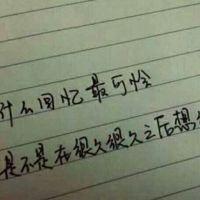 什么回忆最可怜
是不是在很久很久之后想